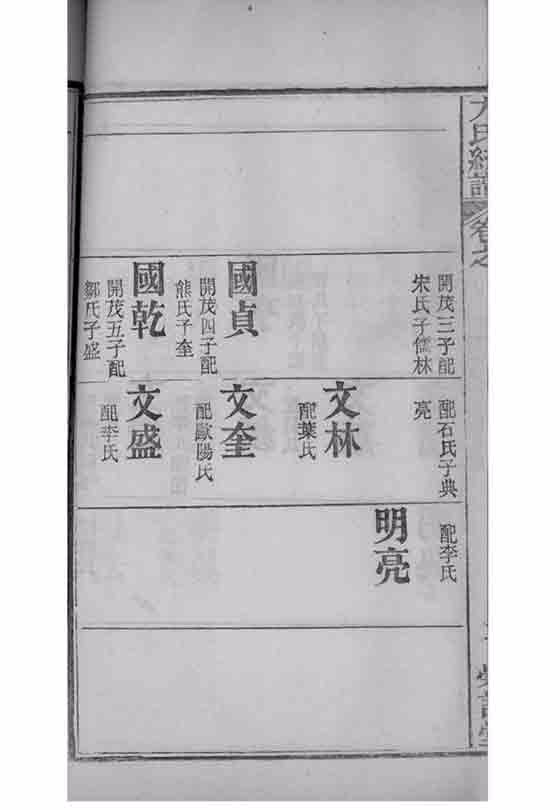 卷之
開茂三子配
宋氏子儒林
國貞
開茂四子配
熊氏子奎
國乾
開茂五子配
鄒氏子盛
配石氏子典
亮
文林
配葉氏
文奎
配歐陽氏
文盛
配李氏
配李氏
明亮